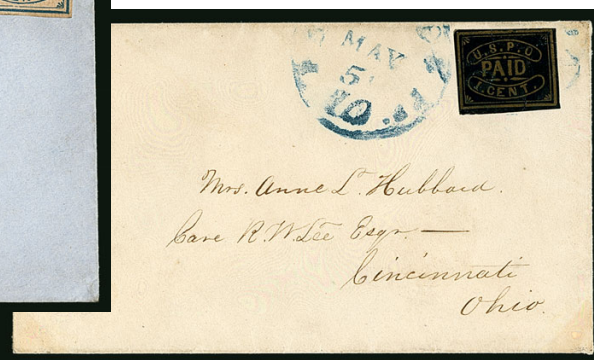 MAY
5
U.S.P.O
PAID
1.CENT.
Mrs. Anne L. Hubbard.
Care R. W. Lee Esqr. —
Cincinnati
Ohio.